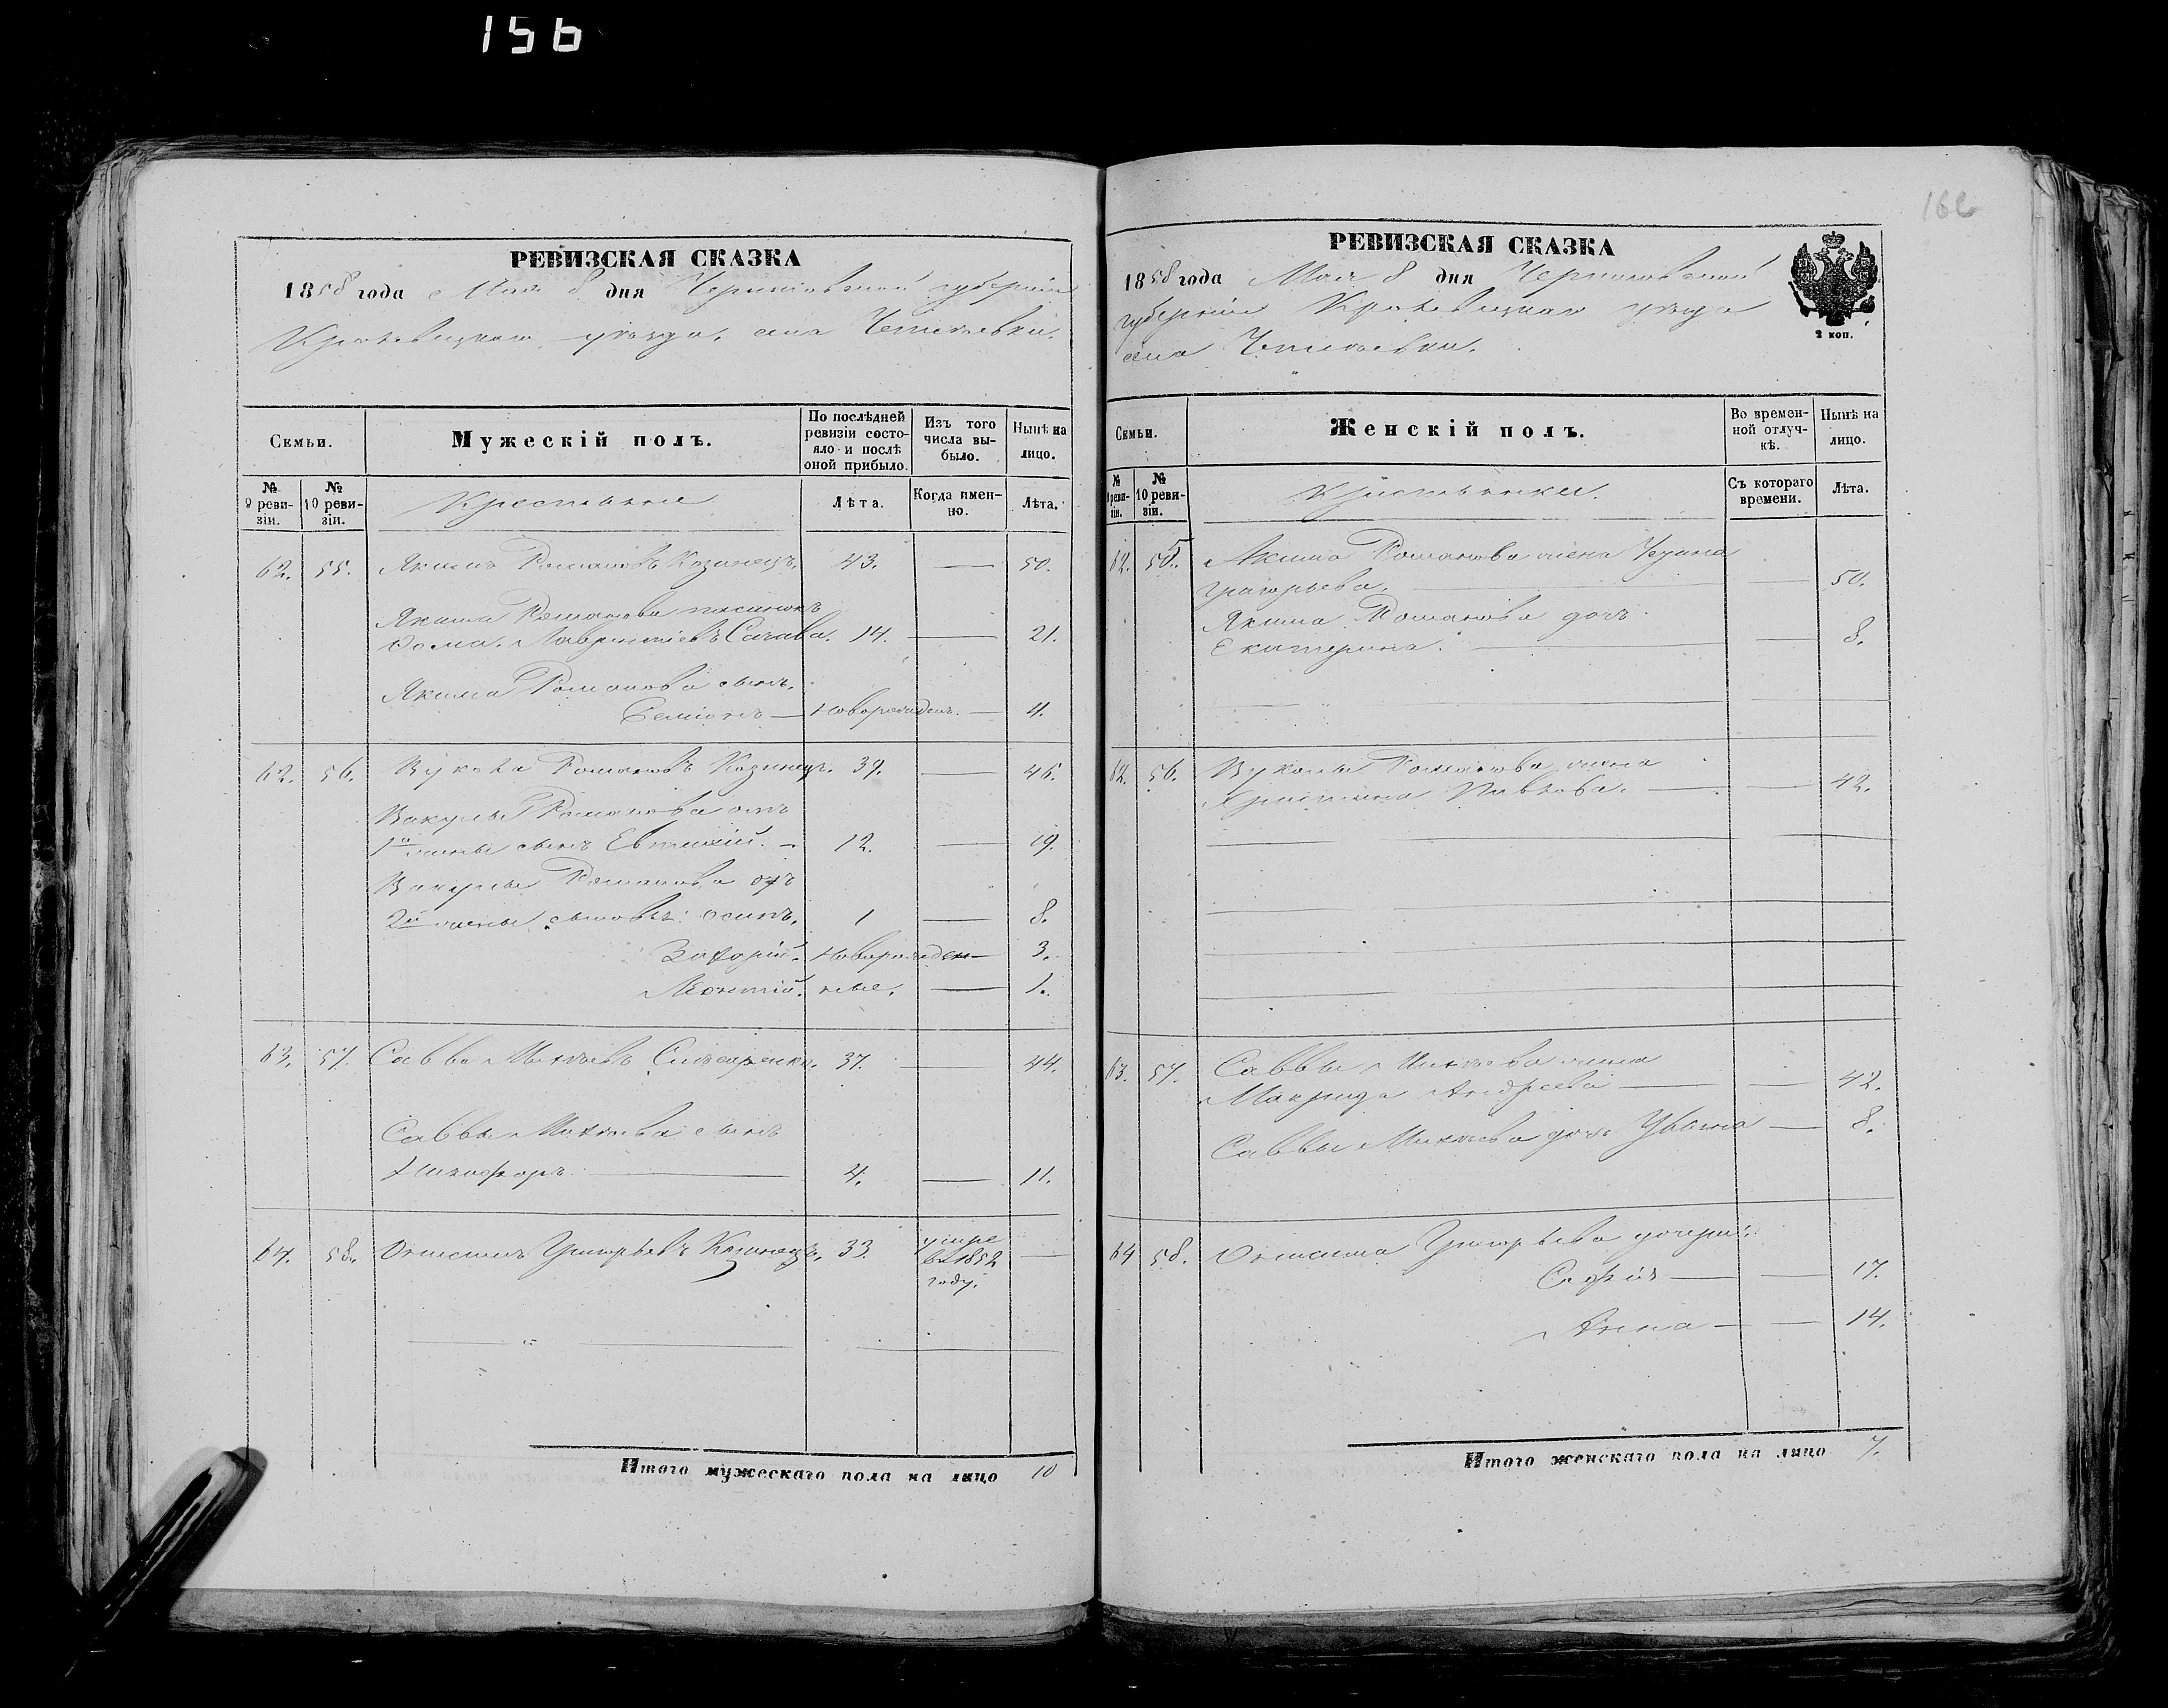 156
162
РЕВИЗСКАЯ СКАЗКА
1858 года Мая 8 дня Черниговской губерніи
Кролевецкаго уѣзда, села
Семьи.
Мужескій полъ.
По послѣдней ревизіи состояло и послѣ оной прибыло.
Изъ того числа выбыло.
Нынѣ на лицо.
№ 9 ревизіи.
№ 10 ревизіи.
Крестьяне
Лѣта.
Когда именно.
Лѣта.
62. 55. Якимъ Романовъ Козинецъ. 43. — 50.
Якима Романова пасинокъ
Фома Лаврентіевъ 14. — 21.
Якима Романова сынъ.
Семіонъ — новорожден. — 4.
62. 56. Вукола Романовъ Козинецъ. 39. — 46.
Вакулы Романова отъ
1й жены сынъ Евтихій. — 12. — 19.
Вакулы Романова отъ
2й жены сыновья: Осипъ. 1 — 8.
Захорій. новорожден— 3.
Леонтій. ные. — 1.
63. 57. Савва Михеевъ 37. — 44.
Саввы Михеева сынъ
Никифоръ 4. — 11.
64. 58. Онисимъ Григорьевъ Козинецъ. 33. умре —
въ 1852
году.
Итого мужескаго пола на лицо 10
РЕВИЗСКАЯ СКАЗКА
1858 года Мая 8 дня Черниговской
губерніи Кролевецкаго уѣзда
села
2 коп.
Семьи.
Женскій полъ.
Во временной отлучкѣ.
Нынѣ на лицо.
№ 9 ревизіи.
№ 10 ревизіи.
Крестьянки.
Съ котораго времени.
Лѣта.
62. 55. Акима Романова жена
Григорьева. — 50.
Якима Романова дочь
Екатерина. — — 8.
62. 56. Вуколы Романова жена
Христина Павлова. — — 42.
63. 57. Саввы Михеева жена
Макрида Андреева — — 42.
Саввы Михеева дочь Ульяна — 8.
64 58. Онисима Григорьева дочери:
Софія — — 17.
Анна — — 14.
Итого женскаго пола на лицо 7.